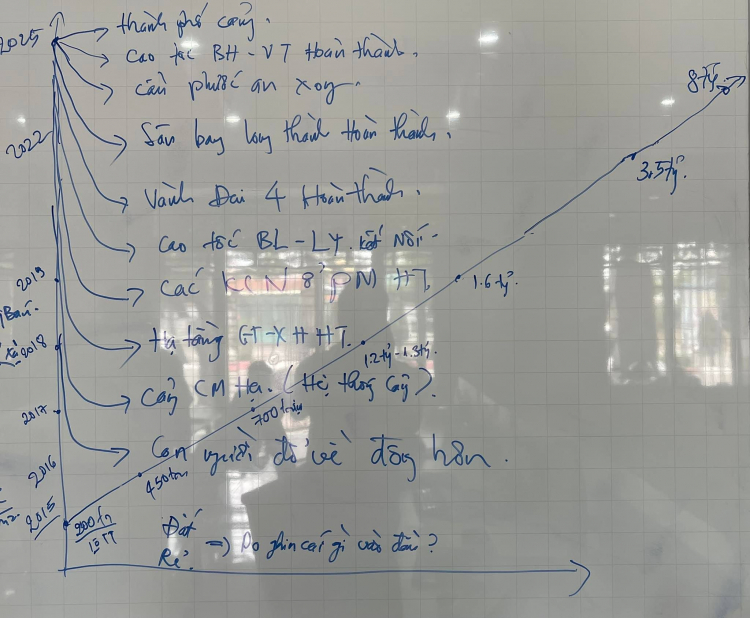 2025
thành phố cảng.
cao tốc BH-VT Hoàn thành.
cầu phước an xong.
8 Tỷ.
2022
Sân bay long thành Hoàn thành.
3.5 Tỷ.
Vành Đai 4 Hoàn thành.
cao tốc BL-LT. kết Nối
2019
các KCN ở PM HT.
1.6 tỷ.
Bán.
2018
Hạ tầng GT-XH HT.
1.2 tỷ - 1.3 tỷ.
Cảng CM Hạ. (Hệ thống Cảng).
2017
700 triệu
Con người đổ về đông hơn.
2016
450 tr
2015
200 tr
Đất
Rẻ. =>
cái gì vào đâu?